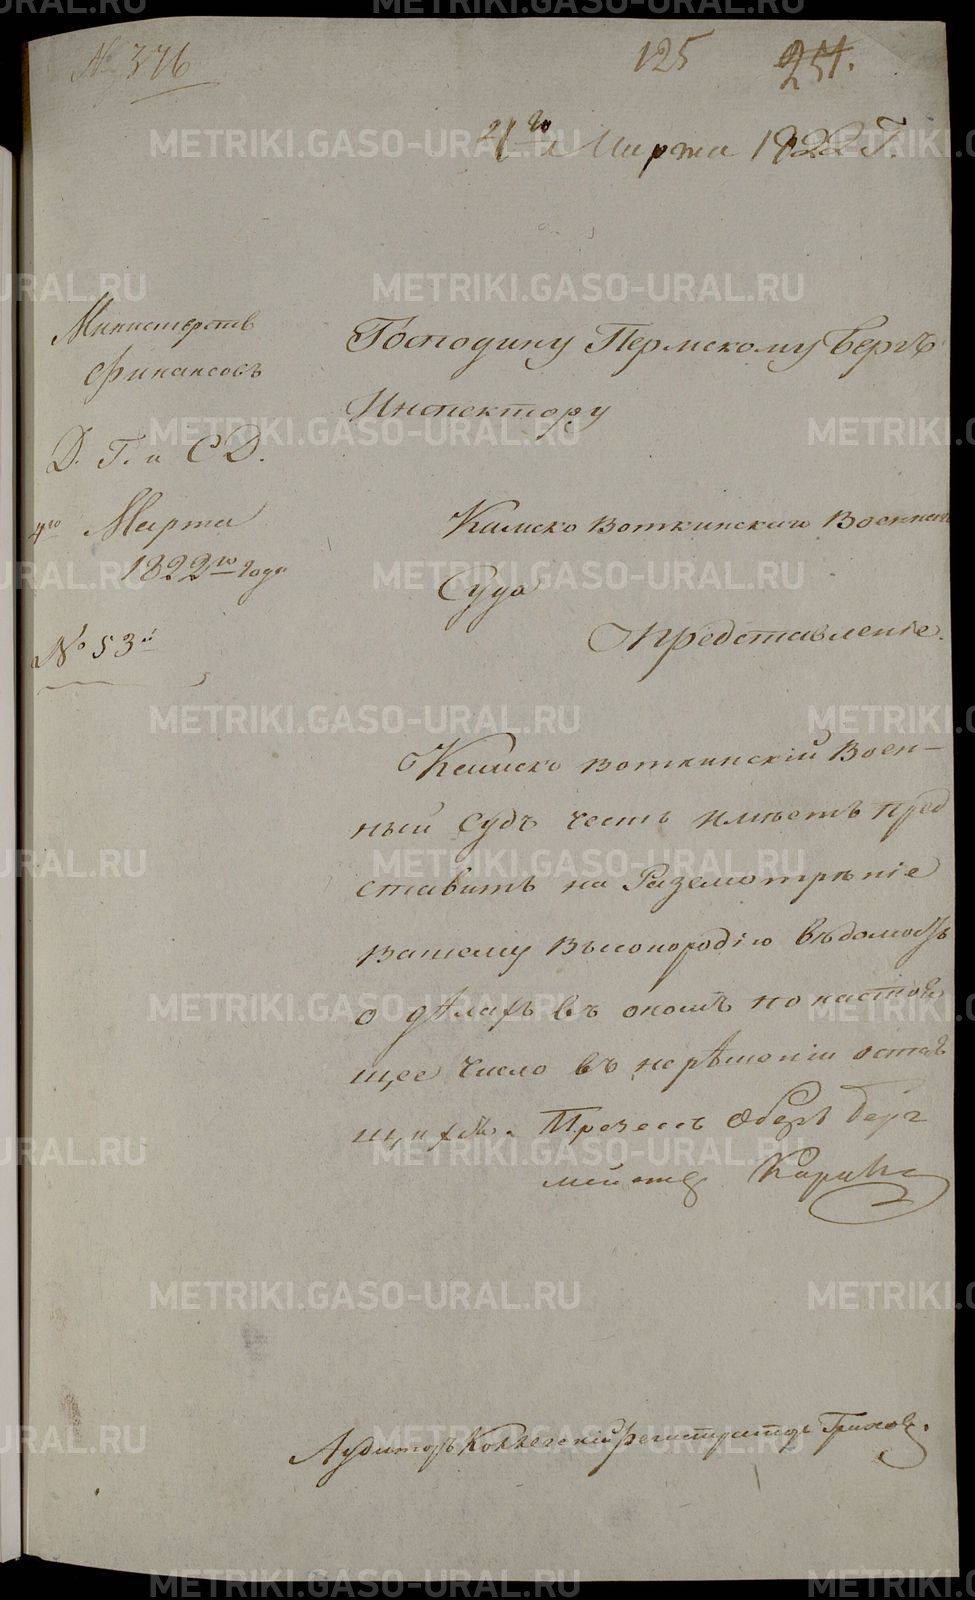 № 376
125
251.
21го Марта 1822 Г.
Министерство
Финансовъ
Д. Г. и С Д.
4го Марта
1822го года
№ 53й
Господину Пермскому Бергъ
Инспектору
Камско Воткинскаго Военнаго
Суда
Представленіе.
Камско Воткинскій Воен-
ный Судъ честь имѣетъ пред
ставить на Разсмотрѣніе
Вашему Высокородію вѣдомость
о дѣлахъ въ ономъ по настоя
щее число въ нерѣшеніи остав
щихся. Презесъ Оберъ Берг
мейстеръ
Аудиторъ Коллежскій Регистраторъ
METRIKI.GASO-URAL.RU